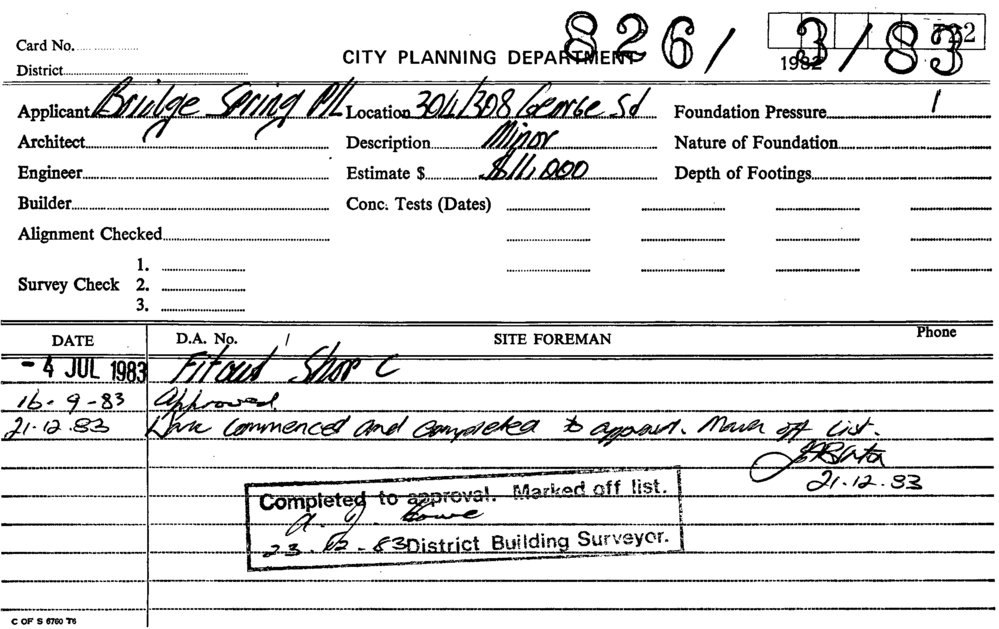 826/3/83
722
Card No.
CITY PLANNING DEPARTMENT
1982
District
Applicant Bridge Spring P/L Location 304/308 George St Foundation Pressure 1
Architect Description Minor Nature of Foundation
Engineer Estimate $ $11,000 Depth of Footings
Builder Conc. Tests (Dates)
Alignment Checked
1.
Survey Check 2.
3.
DATE D.A. No. / SITE FOREMAN Phone
- 4 JUL 1983 Fitout Shop C
16-9-83 Approved.
21.12.83 Work commenced and completed to approval. Mark off list.
21.12.83
Completed to approval. Marked off list.
A. J. Howe
23.12-83 District Building Surveyor.
C OF S 6760 T6